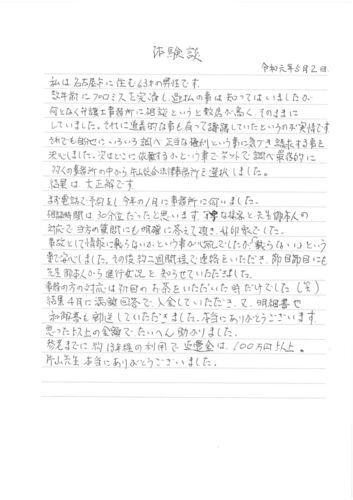 体験談
令和元年5月2日
私は名古屋市に住む63才の男性です。
数年前にプロミスを完済し過払の事は知ってはいましたが
何となく弁護士事務所に相談というと敷居が高く、そのままに
していました。それに道義的な事も有って躊躇していたというのが実情です
それでも自分でいろいろ調べ正当な権利という事に気づき請求する事を
決心しました。次はどこに依頼するかという事でネットで調べ最終的に
多くの事務所の中から片山総合法律事務所を選択しました。
結果は、大正解です
まず電話で予約をし今年の1月に事務所に伺いました。
相談時間は30分位だったと思います。丁寧な接客と先生御本人の
対応で当方の質問にも明確に答えて頂き、好印象でした。
事故として情報に載らないかという事が心配でしたが「載らない」という
事で安心しました。その後約2週間後で連絡をいただき、節目節目にも
先生御本人から進行状況を知らせていただきました。
事務の方の対応は初回のお茶をいただいた時だけでした(笑)
結果4月に満額回答で入金していただき、又、明細書や
和解書も郵送していただきました。本当にありがとうございます。
思った以上の金額でたいへん助かりました。
参考までに約13年程の利用で返還金は、100万円以上。
片山先生本当にありがとうございました。